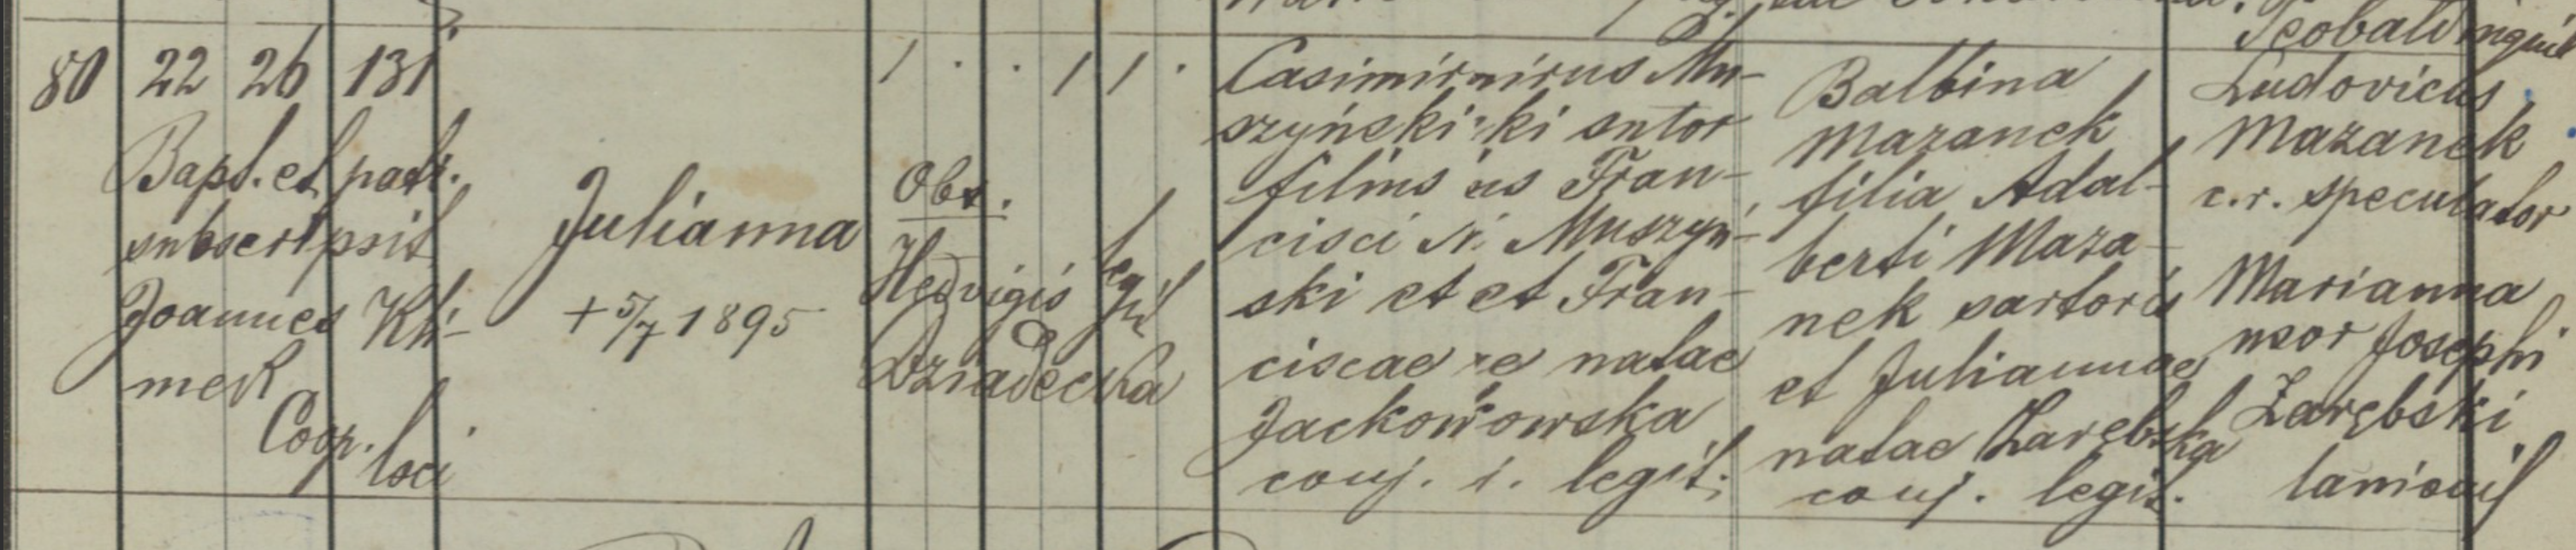 80 22 26 131
Bapt. et patr.
subscripsit
Joannes Kli-
mek
Coop. loci
Julianna
+ 5/7 1895
1 · · 1 1 ·
Obs.
Hedvigis
Dziadecka
legit
Casimirnirus Mu-
szyński ki sutor
filius us Fran-
cisci Muszyń-
ski et et Fran-
ciscae ae natae
Jackowowska
conj. i. legit.
Balbina
Mazanek
filia Adal-
berti Maza-
nek sartoris
et Juliannae
natae Zarębska
conj. legit.
Teobald inquil
Ludovicus
Mazanek
c.r. speculator
Marianna
uxor Josephi
Zarębski